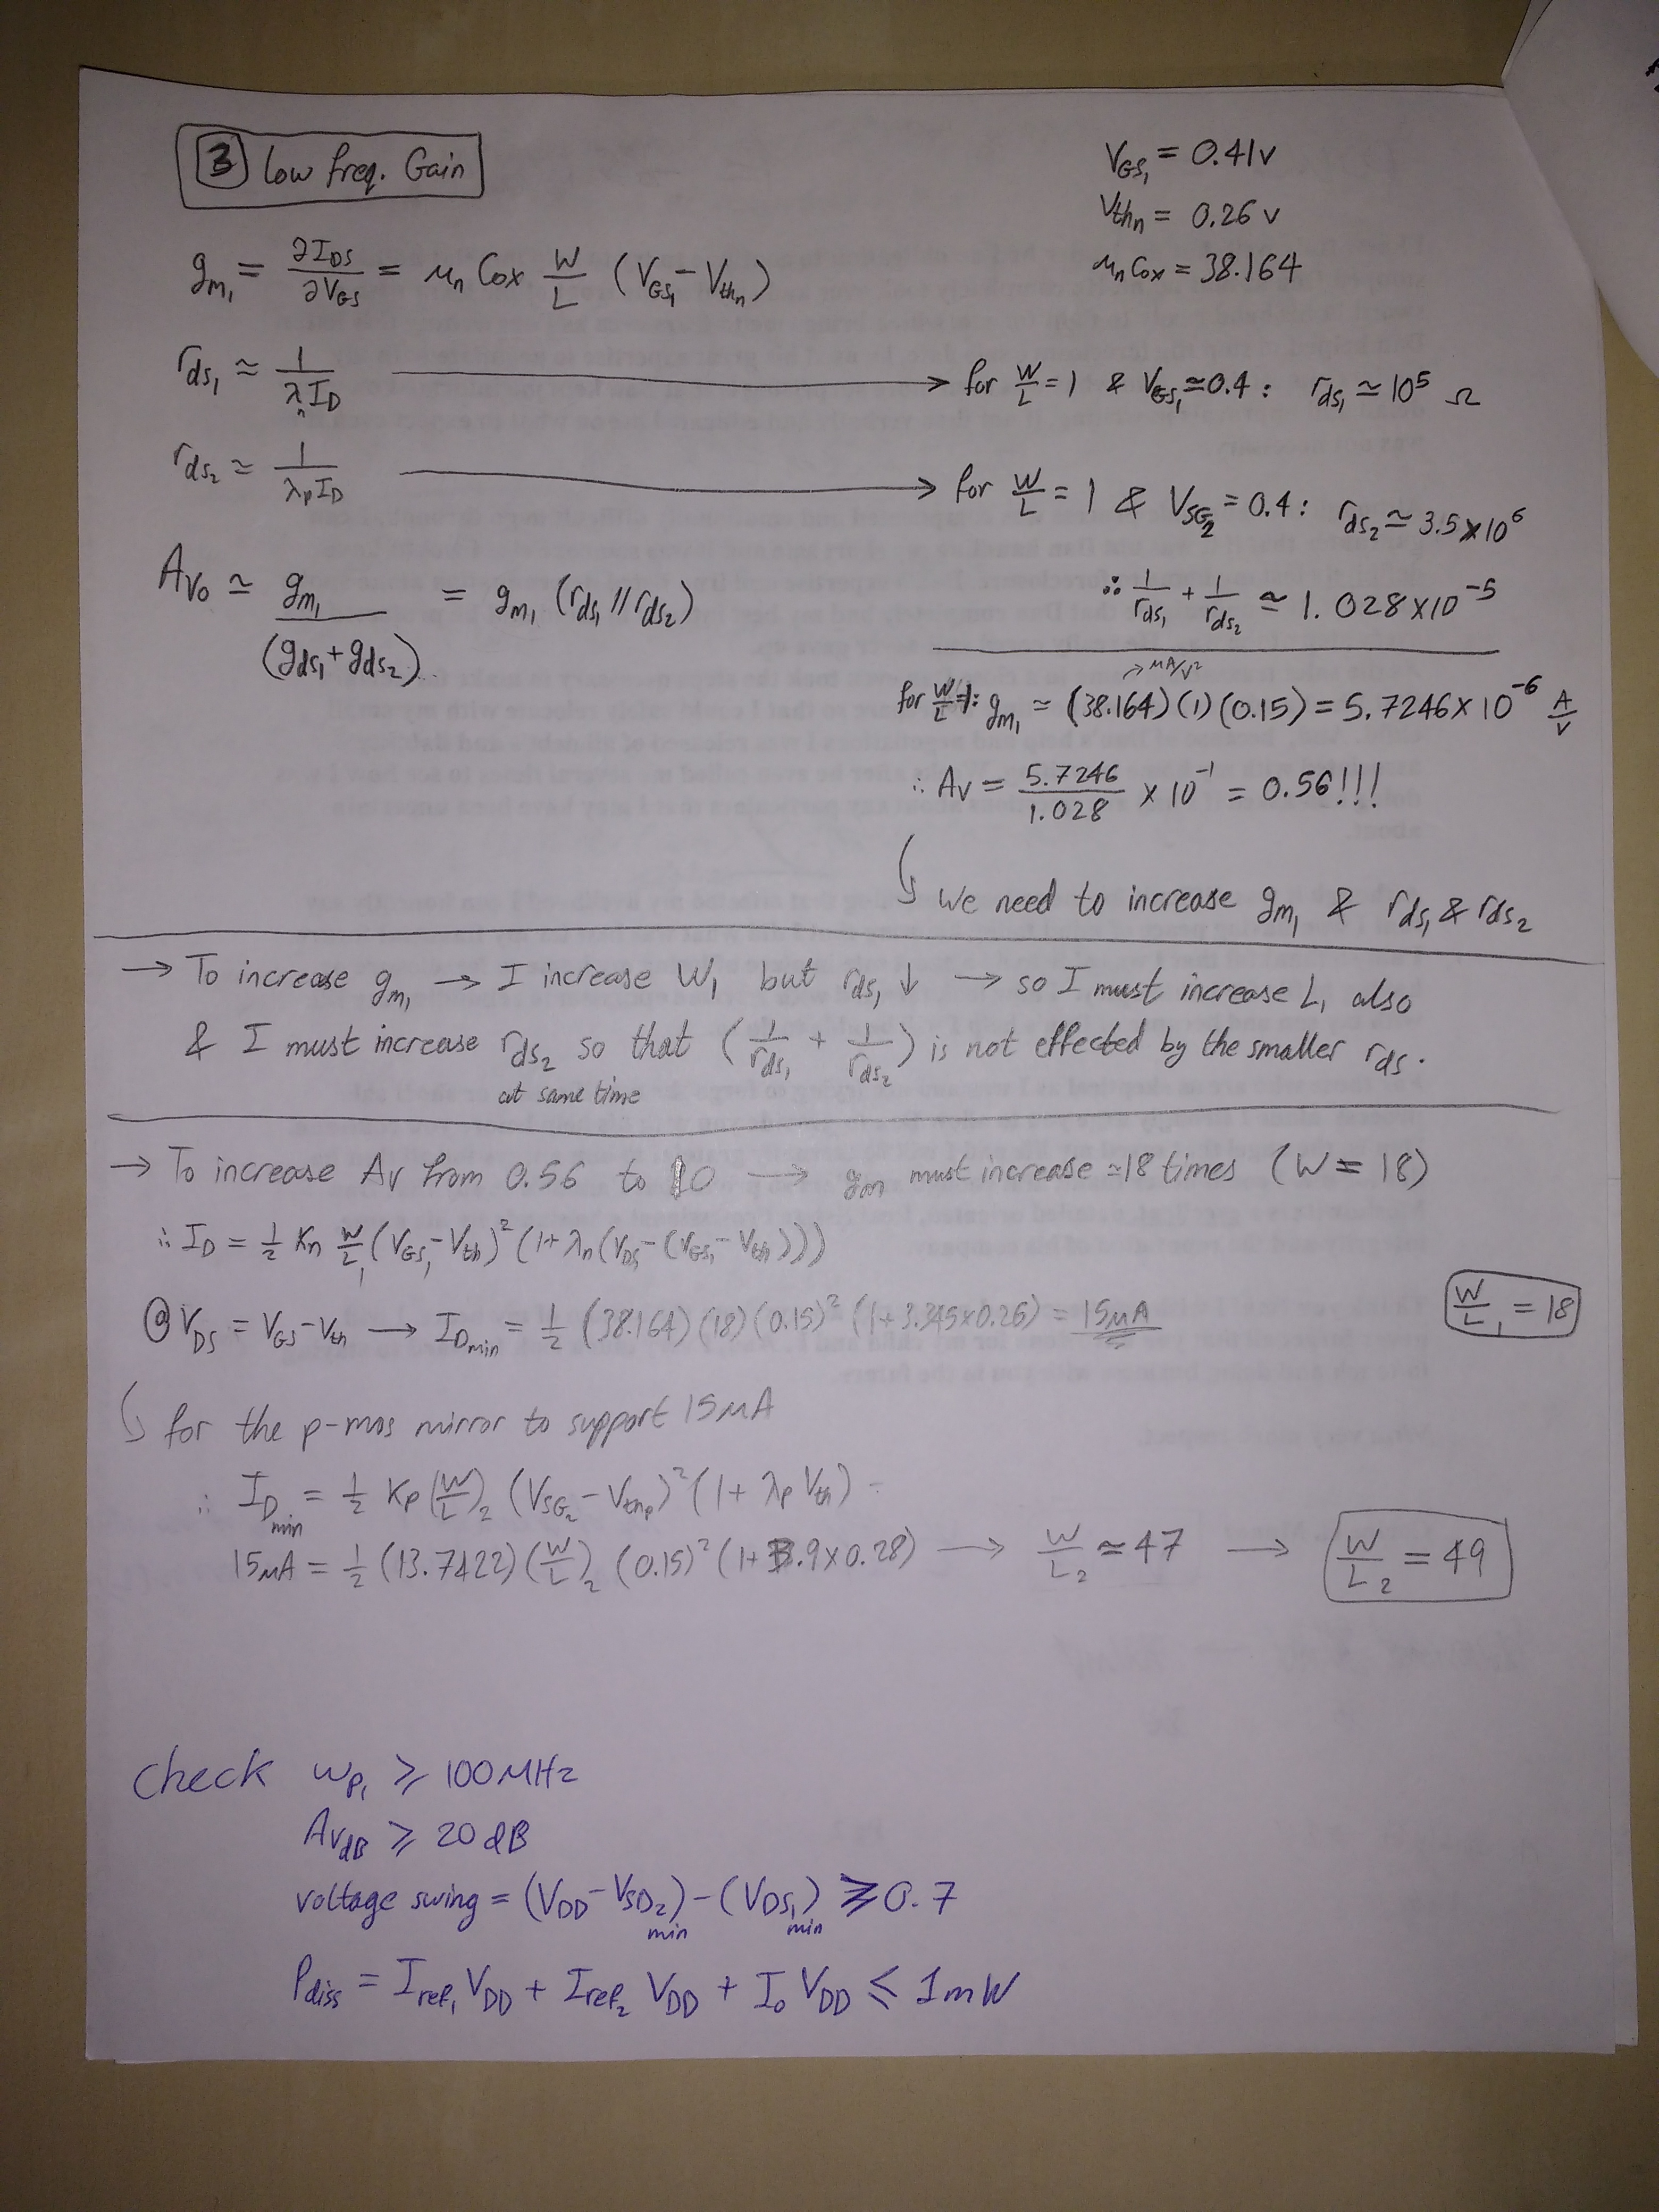 ③ Low freq. Gain
V_GS₁ = 0.41v
V_thn = 0.26 v
μn Cox = 38.164
g_m₁ = ∂I_DS/∂V_GS = μn Cox W/L (V_GS₁ - V_thn)
r_ds₁ ≃ 1/(λn I_D) → for W/L = 1 & V_GS₁ ≃ 0.4 : r_ds₁ ≃ 10⁵ Ω
r_ds₂ ≃ 1/(λp I_D) → for W/L = 1 & V_SG₂ = 0.4 : r_ds₂ ≃ 3.5 x 10⁶
A_V₀ ≃ g_m₁/(g_ds₁ + g_ds₂) = g_m₁ (r_ds₁ // r_ds₂)
∴ 1/r_ds₁ + 1/r_ds₂ ≃ 1.028 x 10⁻⁵
→ μA/v²
for W/L = 1: g_m₁ ≃ (38.164)(1)(0.15) = 5.7246 x 10⁻⁶ A/V
∴ Av = 5.7246/1.028 x 10⁻¹ = 0.56!!!
↳ we need to increase g_m₁ & r_ds₁ & r_ds₂
→ To increase g_m₁ → I increase W₁ but r_ds₁ ↓ → so I must increase L₁ also
& I must increase r_ds₂ so that (1/r_ds₁ + 1/r_ds₂) is not effected by the smaller r_ds.
at same time
→ To increase Av from 0.56 to 10 → gm must increase ≃18 times (W = 18)
∴ I_D = 1/2 Kn W/L₁ (V_GS₁ - V_th)² (1 + λn (V_DS - (V_GS₁ - V_th)))
@ V_DS = V_GS - V_th → I_Dmin = 1/2 (38.164)(18)(0.15)² (1 + 3.345x0.26) = 15μA
W/L₁ = 18
↳ for the p-mos mirror to support 15μA
∴ I_Dmin = 1/2 Kp (W/L)₂ (V_SG₂ - V_thp)² (1 + λp V_th) =
15μA = 1/2 (13.7422) (W/L)₂ (0.15)² (1 + 3.9 x 0.28) → W/L₂ ≃ 47 → W/L₂ = 49
Check ωp₁ ⩾ 100MHz
Av_dB ⩾ 20 dB
voltage swing = (V_DD - V_SD₂min) - (V_DS₁min) ⩾ 0.7
P_diss = I_ref₁ V_DD + I_ref₂ V_DD + I₀ V_DD ⩽ 1mW